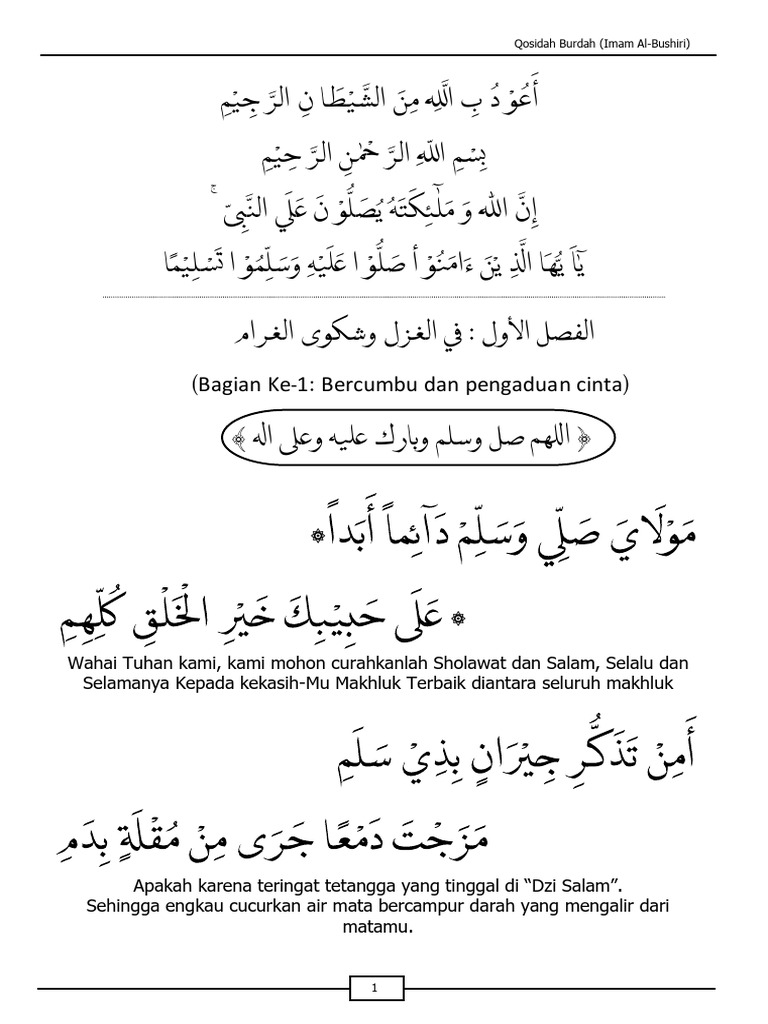 Qosidah Burdah (Imam Al-Bushiri)
أَعُوْ دُ بِ اللَّهِ مِنَ الشَّيْطَا نِ الرَّ جِيْمِ
بِسْمِ اللّٰهِ الرَّ حْمٰنِ الرَّ حِيْمِ
إِنَّ الله وَ مَلٰٓئِكَتَهُ يُصَلُّوْ نَ عَلَي النَّبِىّ ۚ
يٰٓاَ يُّهَا الَّذِ يْنَ ءَامَنُوْ أ صَلُّوْ ا عَلَيْهِ وَسَلِّمُوْ ا تَسْلِيْمًا
الفصل الأول : في الغزل وشكوى الغرام
(Bagian Ke-1: Bercumbu dan pengaduan cinta)
﴿ اللهم صل وسلم وبارك عليه وعلى اله ﴾
مَوْلَايَ صَلِّي وَسَلِّمْ دَآئِماً أَبَداً ۞
۞ عَلَى حَبِيْبِكَ خَيْرِ الْخَلْقِ كُلِّهِمِ
Wahai Tuhan kami, kami mohon curahkanlah Sholawat dan Salam, Selalu dan
Selamanya Kepada kekasih-Mu Makhluk Terbaik diantara seluruh makhluk
أَمِنْ تَذَكُّرِ جِيْرَانٍ بِذِيْ سَلَمِ
مَزَجْتَ دَمْعًا جَرَى مِنْ مُقْلَةٍ بِدَمِ
Apakah karena teringat tetangga yang tinggal di “Dzi Salam”.
Sehingga engkau cucurkan air mata bercampur darah yang mengalir dari
matamu.
1